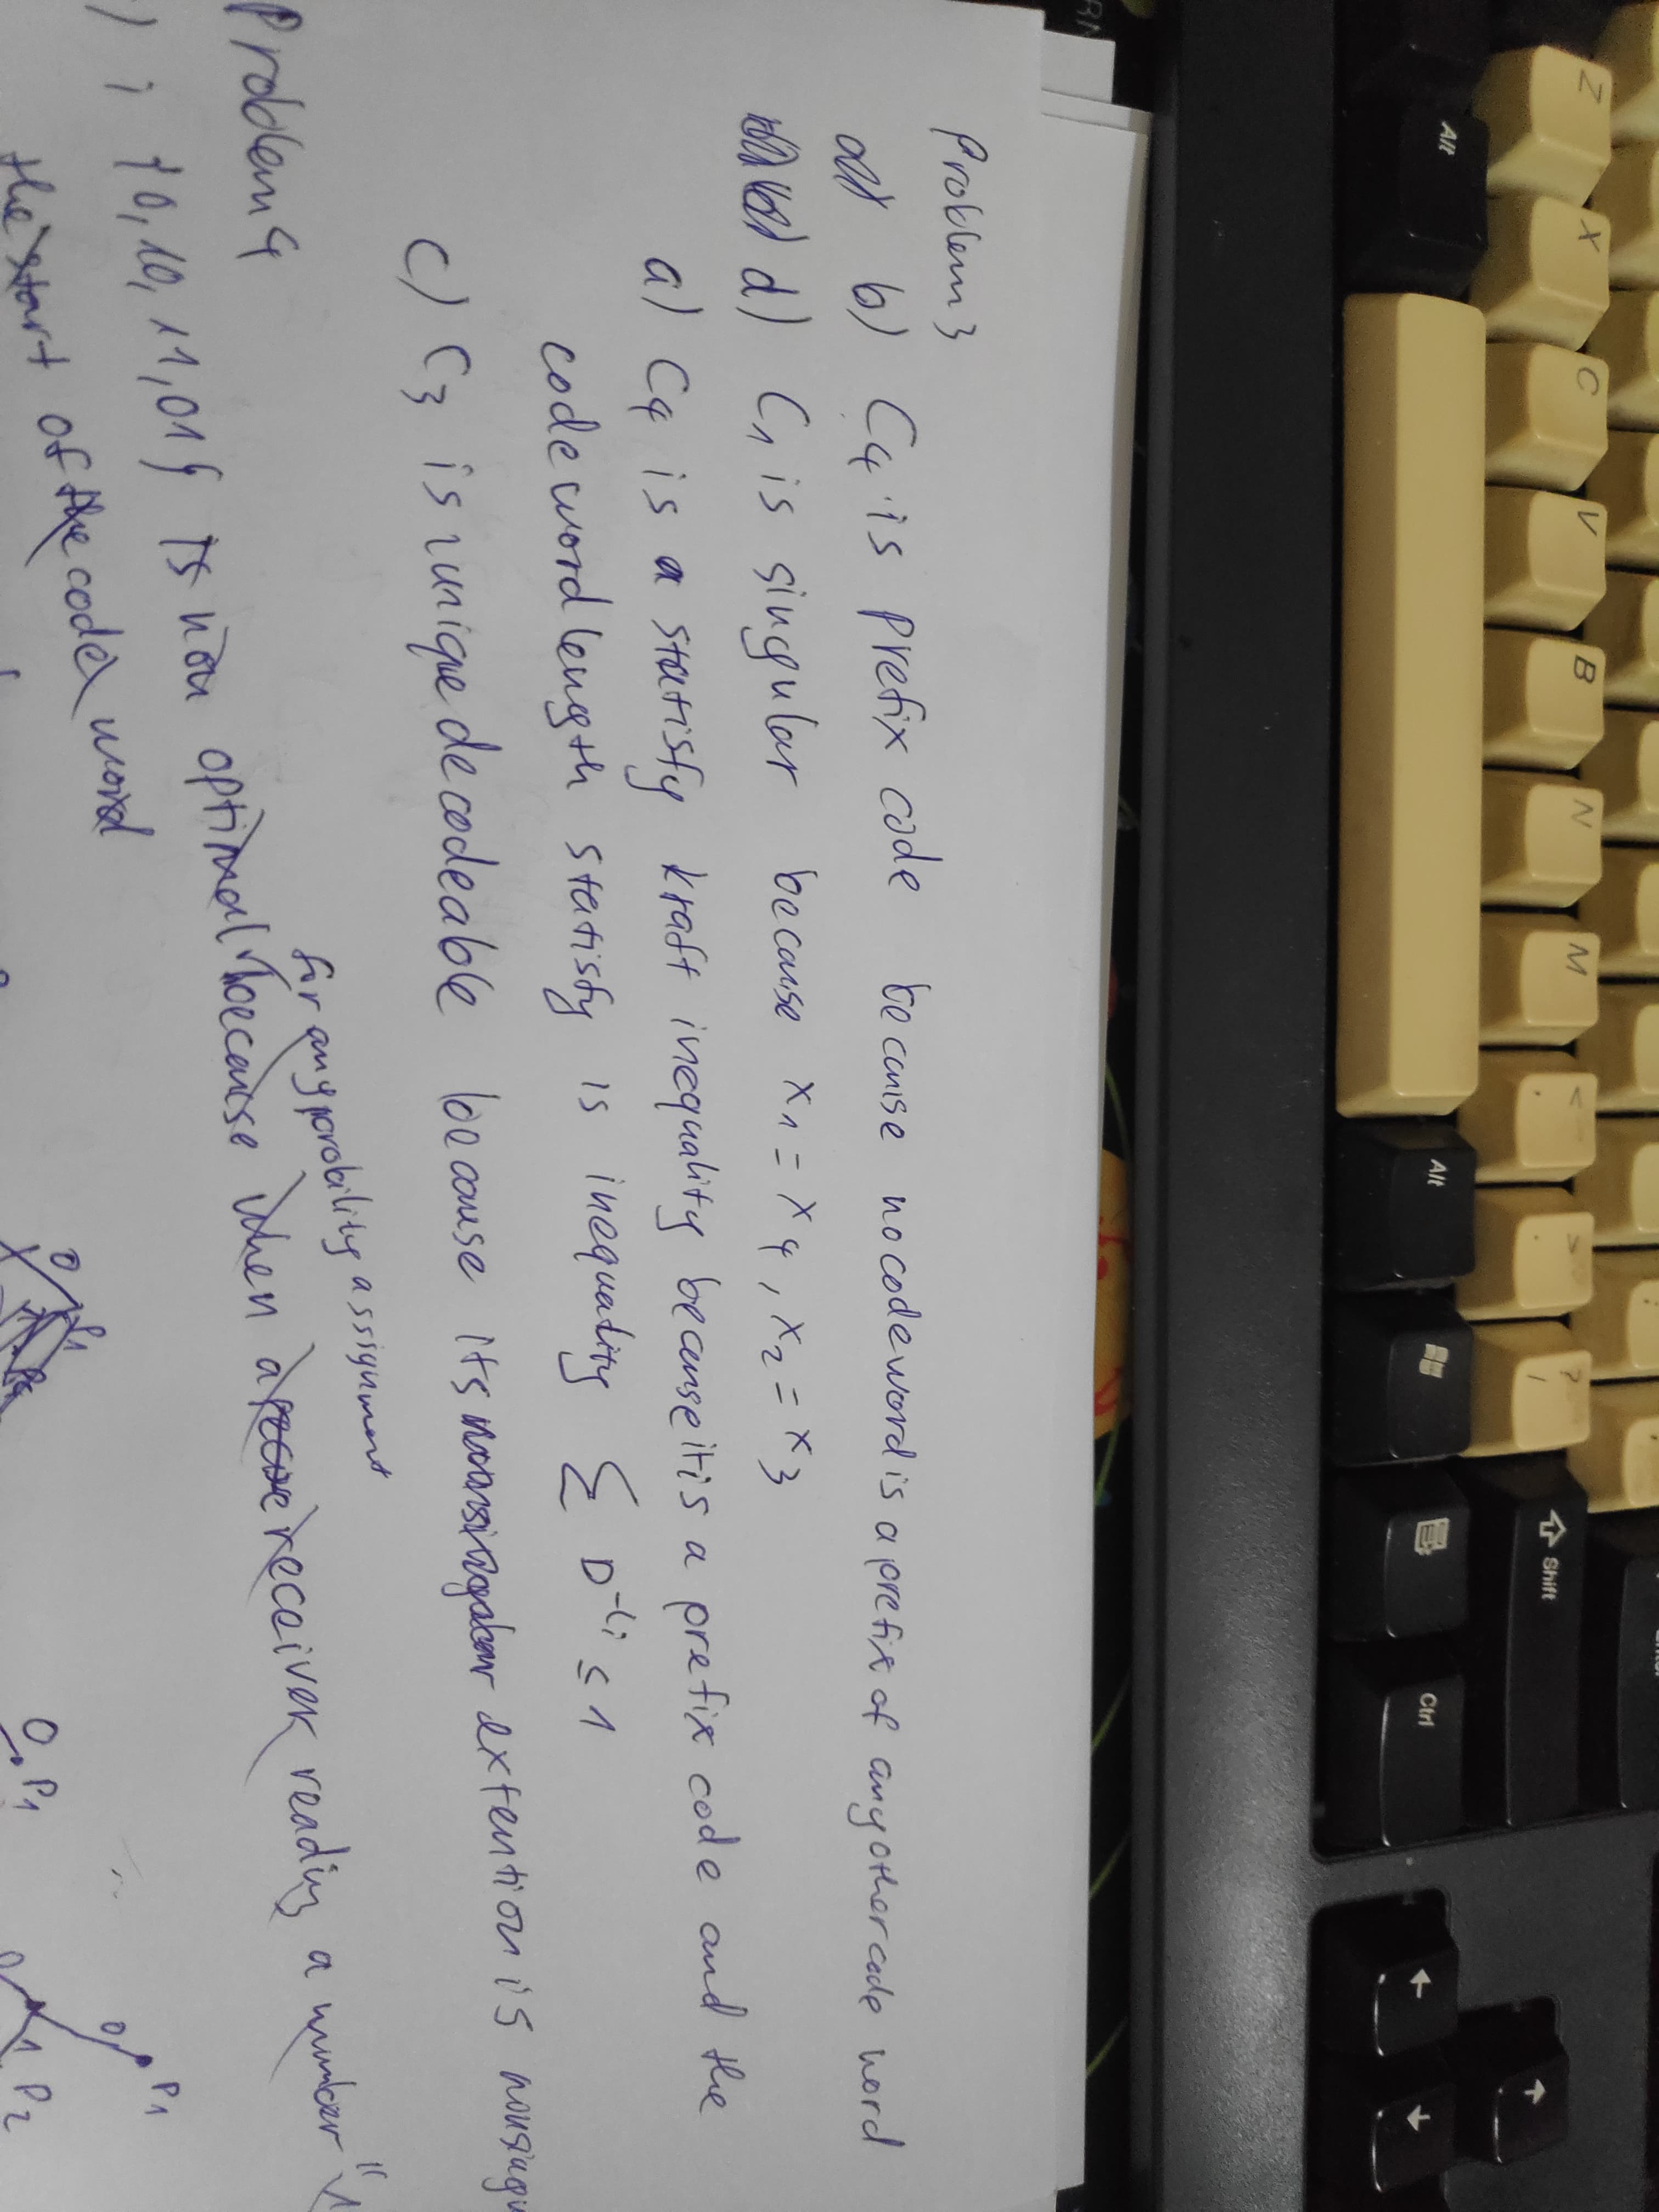 Enter
Z X C V B N M < , > . ? / Shift
Alt Alt Ctrl
Problem 3
b) C4 is prefix code because no codeword is a prefix of any other code word
d) C1 is singular because x1 = x4, x2 = x3
a) C4 is a statisfy kraft inequality because it is a prefix code and the
codeword length statisfy is inequality Σ D^-li ≤ 1
c) C3 is unique decodeable because its nonsingular extention is nonsingu
for any porobility assignment
Problem 4
) i {0, 10, 11, 01} is non optimal because when a receiver reading a number "1
the start of the code word
0 P1
0 P1
0 P1
1 P2